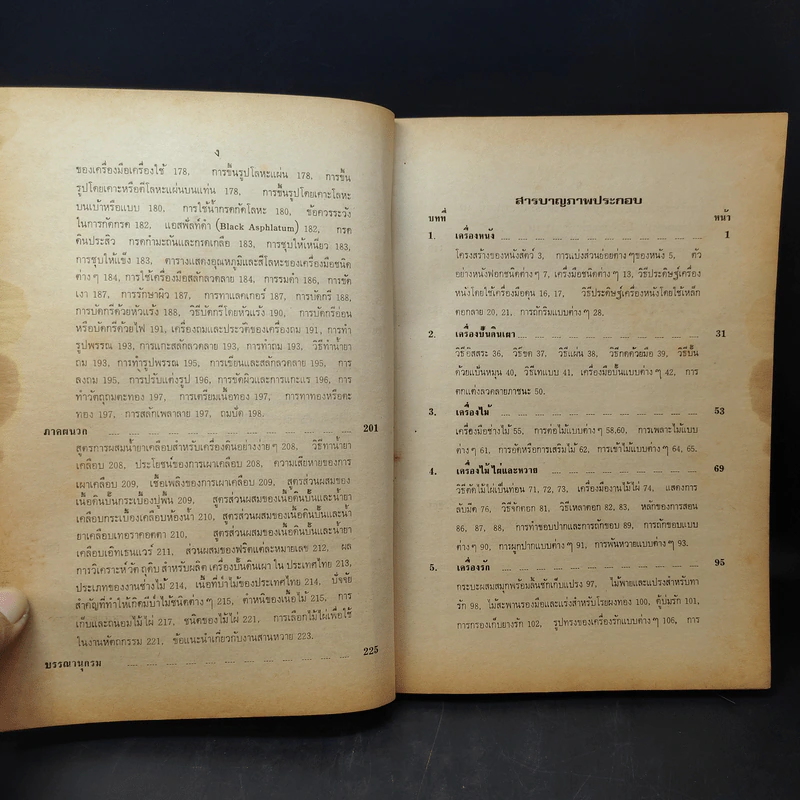 ง
ของเครื่องมือเครื่องใช้ 178, การขึ้นรูปโลหะแผ่น 178, การขึ้น
รูปโดยเคาะหรือตีโลหะแผ่นบนแท่น 178, การขึ้นรูปโดยเคาะโลหะ
บนเบ้าหรือแบบ 180, การใช้น้ำกรดกัดโลหะ 180, ข้อควรระวัง
ในการกัดกรด 182, แอสฟัลท์ดำ (Black Asphlatum) 182, กรด
ดินประสิว กรดกำมะถันและกรดเกลือ 183, การชุบให้เหนียว 183,
การชุบให้แข็ง 183, ตารางแสดงอุณหภูมิและสีโลหะของเครื่องมือชนิด
ต่าง ๆ 184, การใช้เครื่องมือสลักลวดลาย 184, การรมดำ 186, การขัด
เงา 187, การรักษาผิว 187, การทาแลคเกอร์ 187, การบัดกรี 188,
การบัดกรีด้วยหัวแร้ง 188, วิธีบัดกรีโดยหัวแร้ง 190, การบัดกรีอ่อน
หรือบัดกรีด้วยไฟ 191, เครื่องถมและประวัติของเครื่องถม 191, การทำ
รูปพรรณ 193, การแกะสลักลวดลาย 193, การทำถม 193, วิธีทำน้ำยา
ถม 193, การทำรูปพรรณ 195, การเขียนและสลักลวดลาย 195, การ
ลงถม 195, การปรับแต่งรูป 196, การขัดผิวและการแกะแร 196, การ
ทำวัตถุถมตะทอง 197, การเตรียมเนื้อทอง 197, การทาทองหรือตะ
ทอง 197, การสลักเพลาลาย 197, ถมปัด 198.
ภาคผนวก 201
สูตรการผสมน้ำยาเคลือบสำหรับเครื่องดินอย่างง่าย ๆ 208, วิธีทำน้ำยา
เคลือบ 208, ประโยชน์ของการเผาเคลือบ 208, ความเสียหายของการ
เผาเคลือบ 209, เชื้อเพลิงของการเผาเคลือบ 209, สูตรส่วนผสมของ
เนื้อดินปั้นกระเบื้องปูพื้น 209, สูตรส่วนผสมของเนื้อดินปั้นและน้ำยา
เคลือบกระเบื้องเคลือบห้องน้ำ 210, สูตรส่วนผสมของเนื้อดินปั้นและน้ำ
ยาเคลือบเทอราคอตตา 210, สูตรส่วนผสมของเนื้อดินปั้นและน้ำยา
เคลือบเอิทเธนแวร์ 211, ส่วนผสมของฟริตแต่ละหมายเลข 212, ผล
การวิเคราะห์วัตถุดิบสำหรับผลิตเครื่องปั้นดินเผาในประเทศไทย 213,
ประเภทของงานช่างไม้ 214, เนื้อที่ป่าไม้ของประเทศไทย 214, ปัจจัย
สำคัญที่ทำให้เกิดมีป่าไม้ชนิดต่าง ๆ 215, ตำหนิของเนื้อไม้ 215, การ
เก็บและถนอมไม้ไผ่ 217, ชนิดของไม้ไผ่ 221, การเลือกไม้ไผ่เพื่อใช้
ในงานหัตถกรรม 221, ข้อแนะนำเกี่ยวกับงานสานหวาย 223.
บรรณานุกรม 225
สารบาญภาพประกอบ
บทที่ หน้า
1. เครื่องหนัง 1
โครงสร้างของหนังสัตว์ 3, การแบ่งส่วนย่อยต่าง ๆ ของหนัง 5, ตัว
อย่างหนังฟอกชนิดต่าง ๆ 7, เครื่องมือชนิดต่าง ๆ 13, วิธีประดิษฐ์เครื่อง
หนังโดยใช้เครื่องมือดุน 16, 17, วิธีประดิษฐ์เครื่องหนังโดยใช้เหล็ก
ตอกลาย 20, 21, การถักริมแบบต่าง ๆ 28.
2. เครื่องปั้นดินเผา 31
วิธีอิสสระ 36, วิธีขด 37, วิธีแผ่น 38, วิธีกดด้วยมือ 39, วิธีปั้น
ด้วยแป้นหมุน 40, วิธีเทแบบ 41, เครื่องมือปั้นแบบต่าง ๆ 42, การ
ตกแต่งลวดลายภาชนะ 50.
3. เครื่องไม้ 53
เครื่องมือช่างไม้ 55, การต่อไม้แบบต่าง ๆ 58,60, การเพลาะไม้แบบ
ต่าง ๆ 61, การอัดหรือการเสริมไม้ 62, การเข้าไม้แบบต่าง ๆ 64, 65.
4. เครื่องไม้ไผ่และหวาย 69
วิธีตัดไม้ไผ่เป็นท่อน 71, 72, 73, เครื่องมืองานไม้ไผ่ 74, แสดงการ
ลับมีด 76, วิธีจักตอก 81, วิธีเหลาตอก 82, 83, หลักของการสอน
86, 87, 88, การทำขอบปากและการถักขอบ 89, การถักขอบแบบ
ต่าง ๆ 90, การผูกปากแบบต่าง ๆ 91, การพันหวายแบบต่าง ๆ 93.
5. เครื่องรัก 95
กระบะผสมสมุกพร้อมลิ้นชักเก็บแปรง 97, ไม้พายและแปรงสำหรับทา
รัก 98, ไม้สะพานรองมือและแร่งสำหรับโรยผงทอง 100, ตู้บ่มรัก 101,
การกรองเก็บยางรัก 102, รูปทรงของเครื่องรักแบบต่าง ๆ 106, การ